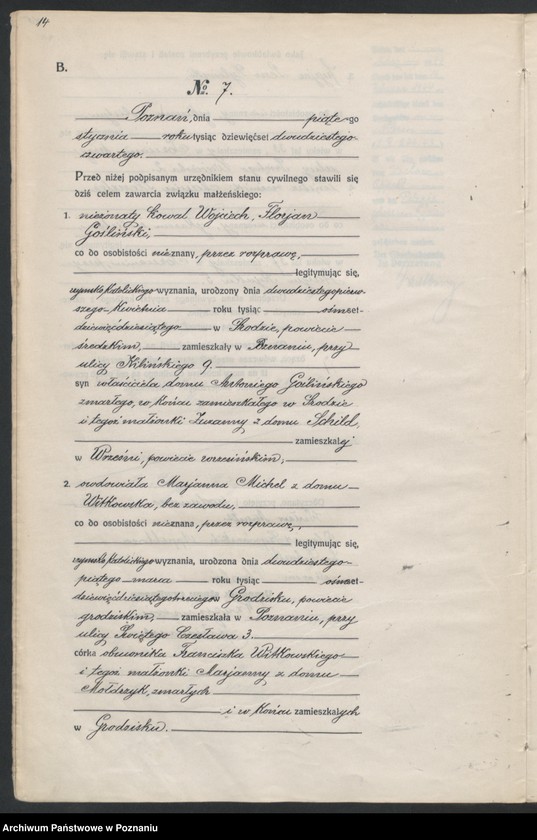 14
B.
№ 7.
Poznań, dnia piątego
stycznia roku tysiąc dziewięćset dwudziestego
czwartego.
Przed niżej podpisanym urzędnikiem stanu cywilnego stawili się
dziś celem zawarcia związku małżeńskiego:
1. nieżonaty kowal Wojciech, Florjan
Gośliński,
co do osobistości nieznany, przez rozprawę,
legitymując się,
rzymsko katolickiego wyznania, urodzony dnia dwudziestegopierw-
szego kwietnia roku tysiąc ośmset-
dziewięćdziesiątego w Środzie, powiecie
średzkim, zamieszkały w Poznaniu, przy
ulicy Kilińskiego 9.
syn właściciela domu Antoniego Goślińskiego
zmarłego, w końcu zamieszkałego w Środzie
i tegoż małżonki Zuzanny z domu Schild,
zamieszkałej
w Wrześni, powiecie wrzesińskim;
2. owdowiała Marjanna Michel z domu
Witkowska, bez zawodu,
co do osobistości nieznana, przez rozprawę,
legitymując się,
rzymsko katolickiego wyznania, urodzona dnia dwudziestego-
piątego marca roku tysiąc ośmset-
w Grodzisku, powiecie
grodziskim, zamieszkała w Poznaniu, przy
ulicy Świętego Czesława 3.
córka obuwnika Franciszka Witkowskiego
i tegoż małżonki Marjanny z domu
zmarłych
i w końcu zamieszkałych
w Grodzisku.
Archiwum Państwowe w Poznaniu